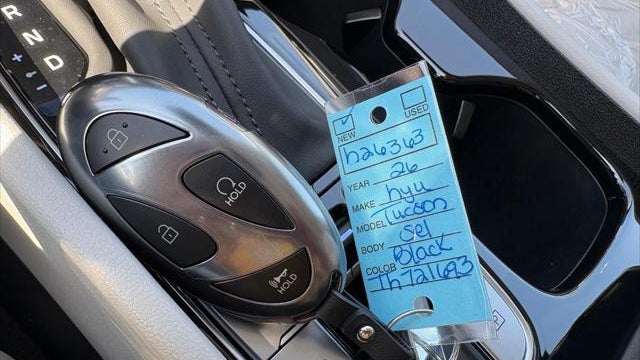 R
N
D
+
-
HOLD
HOLD
NEW USED
h26363
YEAR 26
MAKE hyu
MODEL tucson
BODY sel
COLOR Black
Th T21693